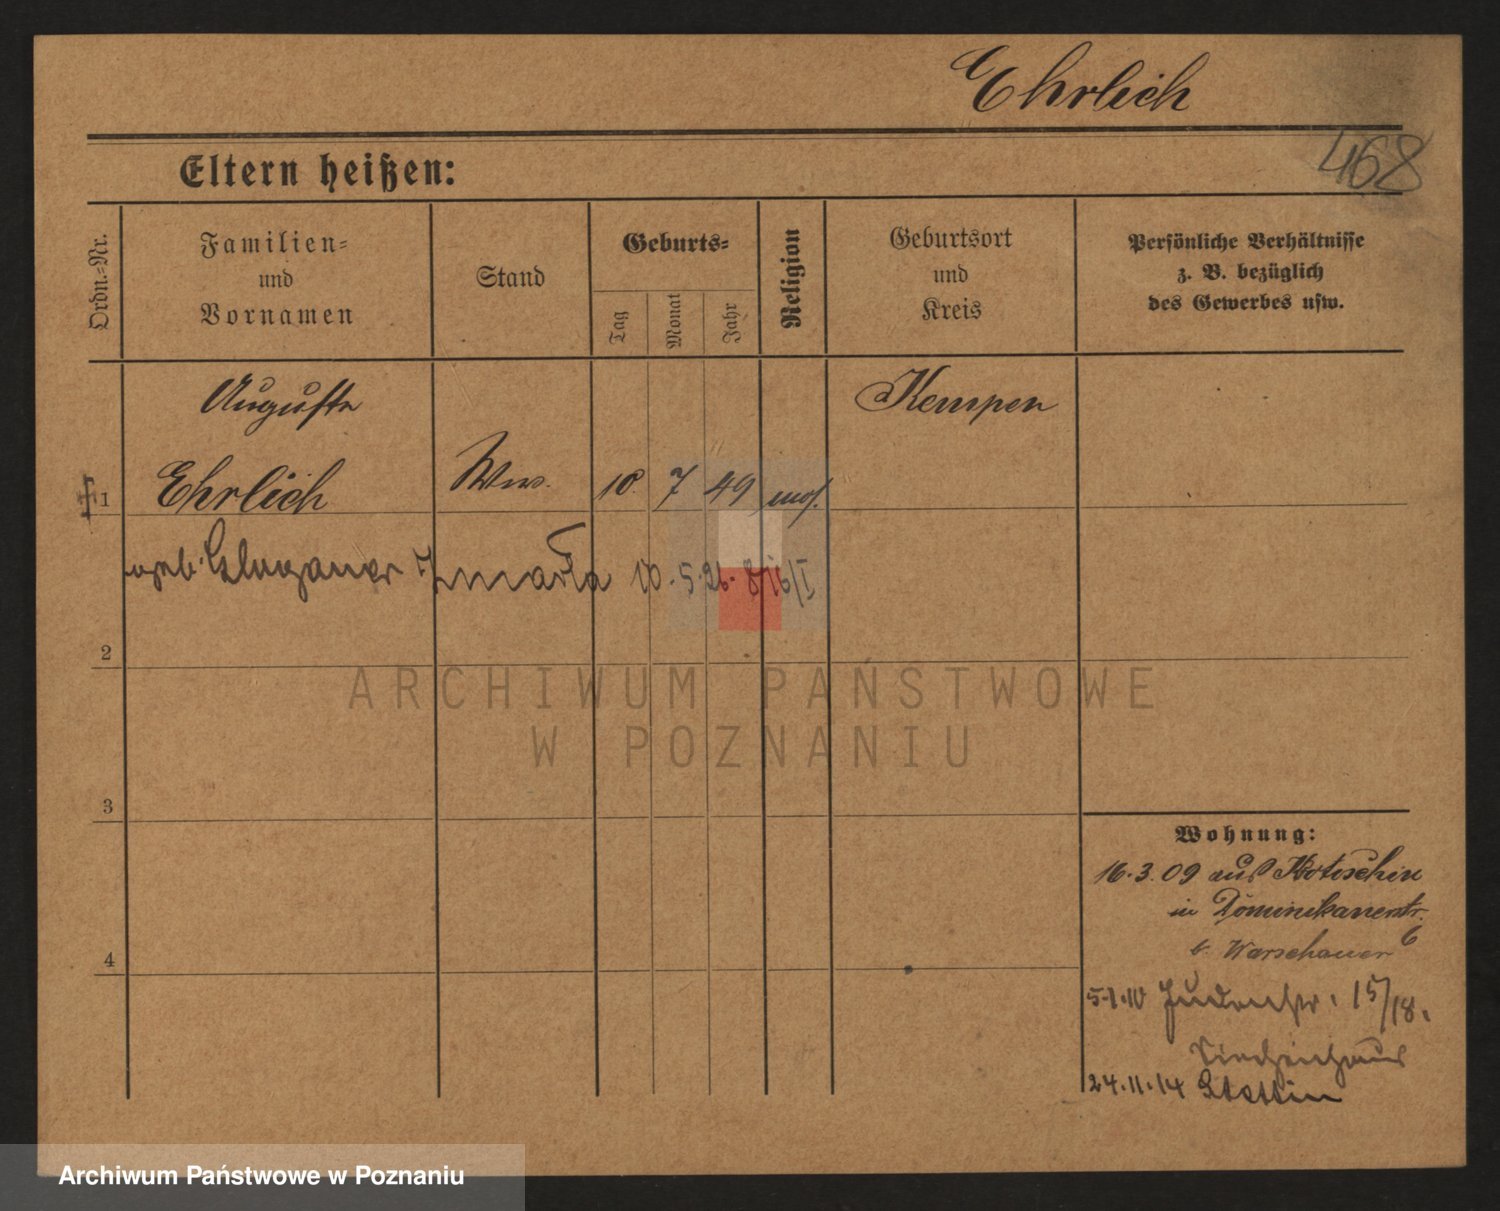 Ehrlich
468
Eltern heißen:
Ordn.-Nr.
Familien- und Vornamen
Stand
Geburts-
Tag
Monat
Jahr
Religion
Geburtsort und Kreis
Persönliche Verhältnisse z. B. bezüglich des Gewerbes usw.
Auguste
Kempen
1 Ehrlich Ww. 10. 7 49 mos.
geb.
2
3
4
Wohnung:
16.3.09 aus Krotoschin
in Dominikanerstr. 6
b. Warschauer
5.1.10 Judenstr. 15/18.
Siechenhaus
24.11.14 Stettin
ARCHIWUM PAŃSTWOWE
W POZNANIU
Archiwum Państwowe w Poznaniu